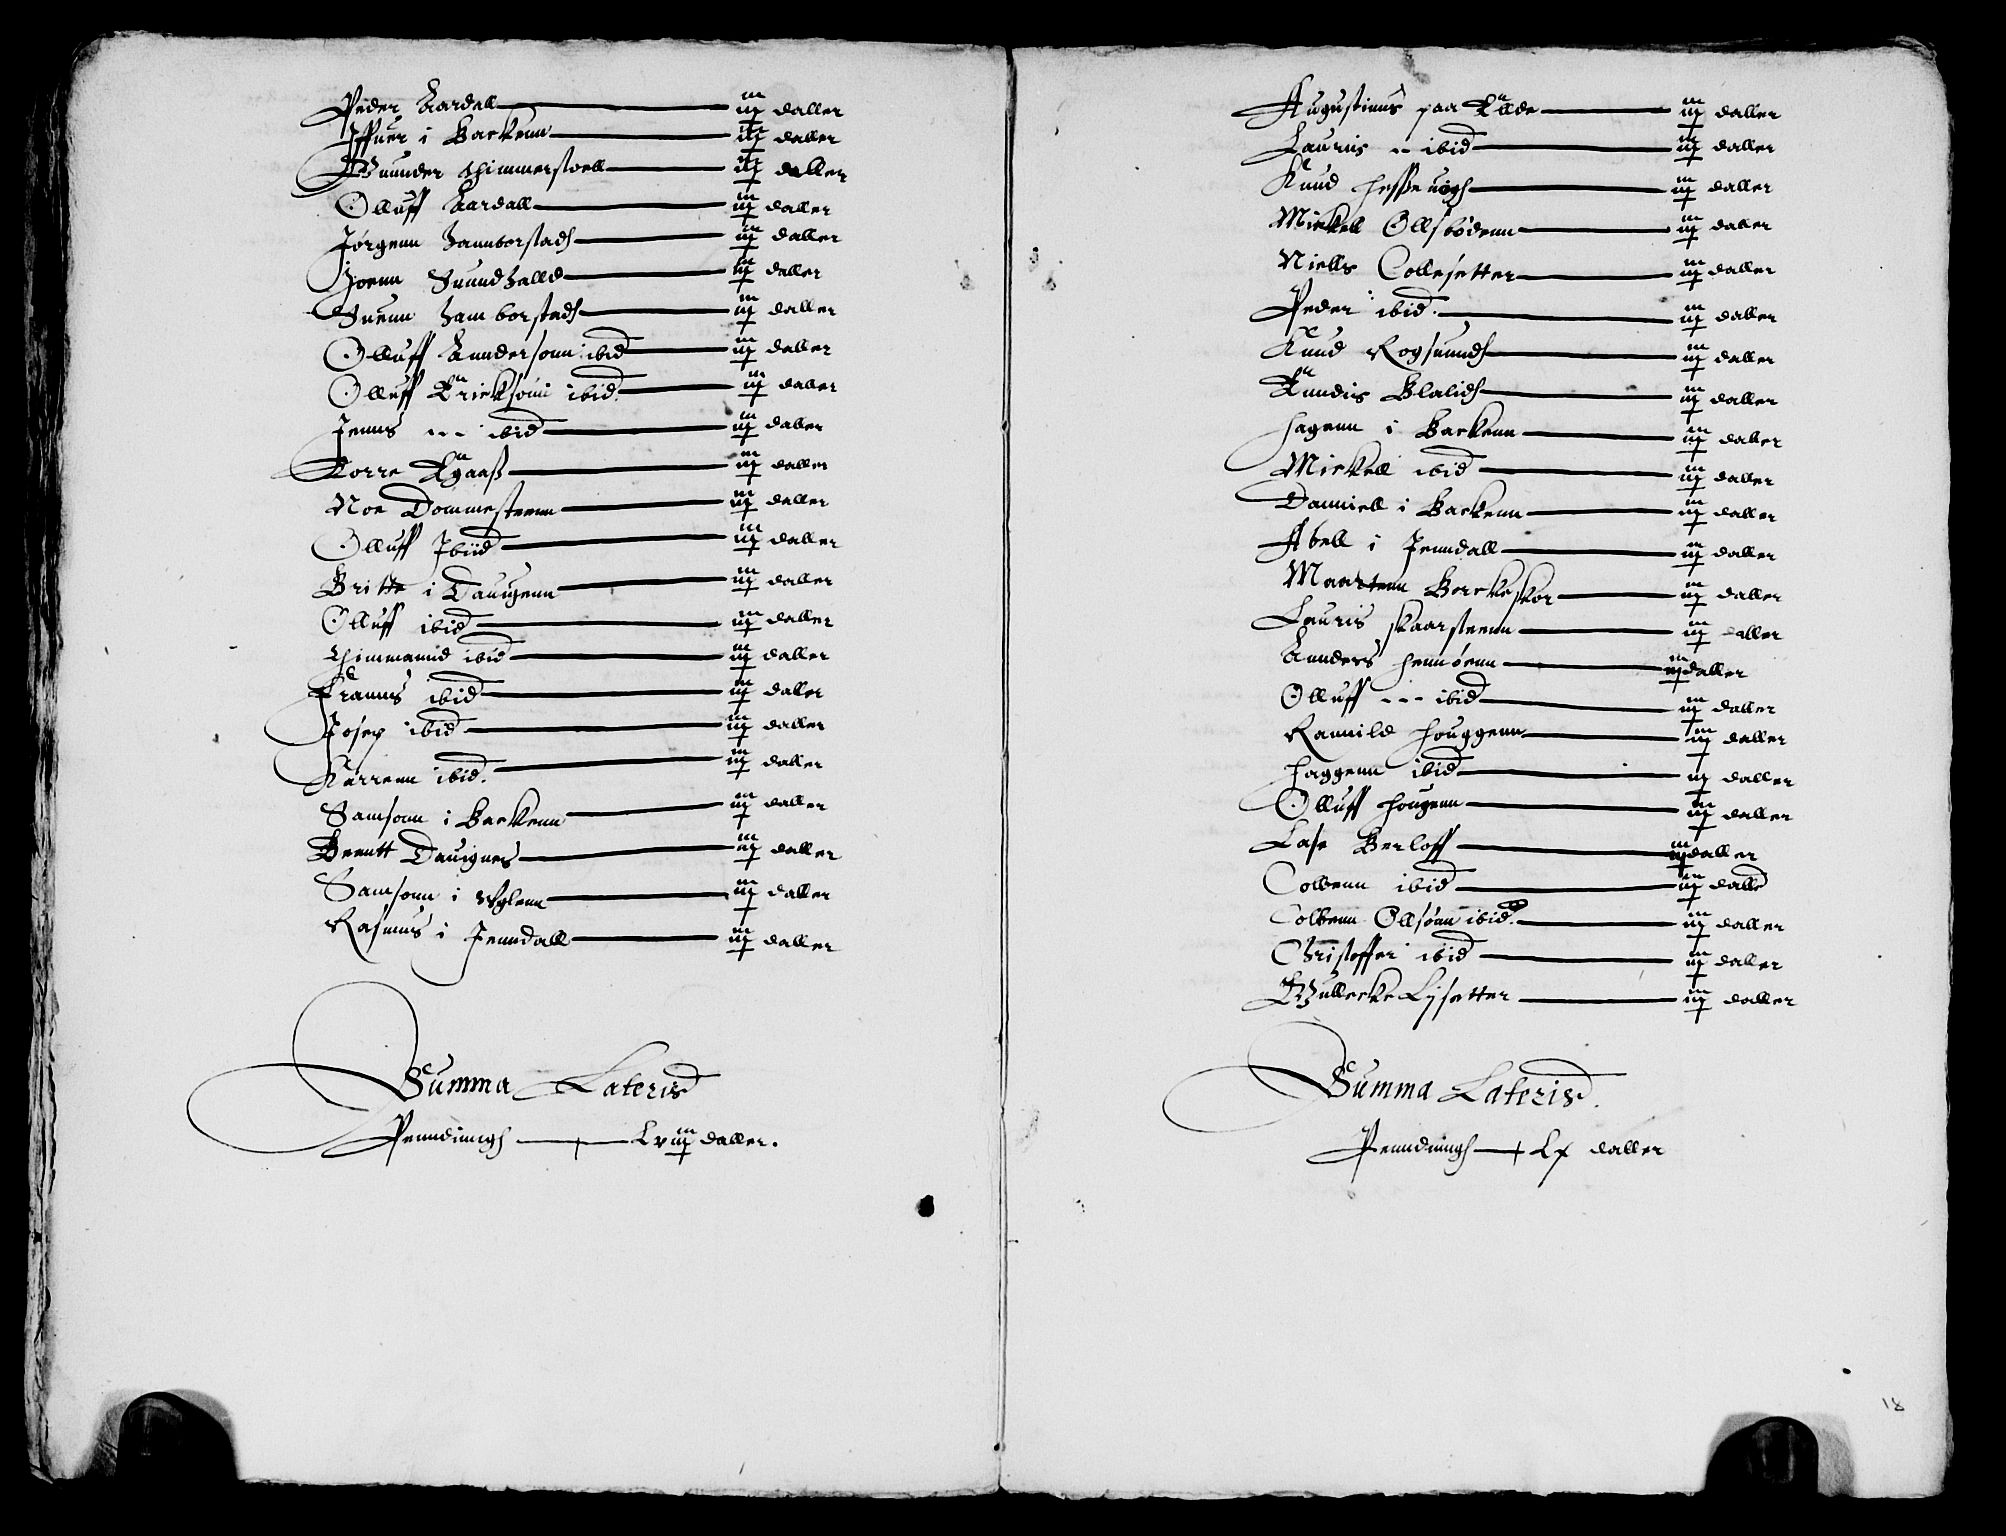 Peder Aardall — iij daller
Iffuer i Backenn — iij daller
Gunnder Thimmerstoell — iij daller
Olluff Aardall — iij daller
Jørgenn Hannborstadh — iij daller
Joenn Sundhalld — iij daller
Suenn Hamborstadh — iij daller
Olluff Anndersonn ibid — iij daller
Olluff Ericksonn ibid. — iij daller
Jenns --- ibid — iij daller
Torre Øgaaß — iij daller
Noe Dommesteenn — iij daller
Olluff Ibiid — iij daller
Britte i Dauigenn — iij daller
Olluff ibid — iij daller
Thimmamid ibid — iij daller
Franns ibid — iij daller
Josep ibid — iij daller
Karrenn ibid. — iij daller
Samsonn i Backenn — iij daller
Berntt Dauignes — iij daller
Samsonn i Vglenn — iij daller
Rasmus i Jenndall — iij daller
Summa Lateris
Penndinngh — Lviij daller.
Augustinus paa Øllde — iij daller
Lauriis -- ibid — iij daller
Knud Hesseuigh — iij daller
Mickell Ollsbødenn — iij daller
Niells Collesetter — iij daller
Peder ibid. — iij daller
Knud Rogsunndh — iij daller
Anndus Blalidh — iij daller
Hagenn i Backenn — iij daller
Mickell ibid — iij daller
Danniell i Backenn — iij daller
Abell i Jenndall — iij daller
Maartenn Borckeskor — iij daller
Lauris Skaarsteenn — iij daller
Annders Hennøenn — iij daller
Olluff --- ibid — iij daller
Rannild Houggenn — iij daller
Haggenn ibid — iij daller
Olluff Hougenn — iij daller
Lase Berloff — iij daller
Colbenn ibid — iij dalle
Colbenn Ollsønn ibid. — iij daller
Christoffer ibid — iij daller
Gullecke Lysetter — iij daller
Summa Lateris.
Penndinngh — Lx daller
18